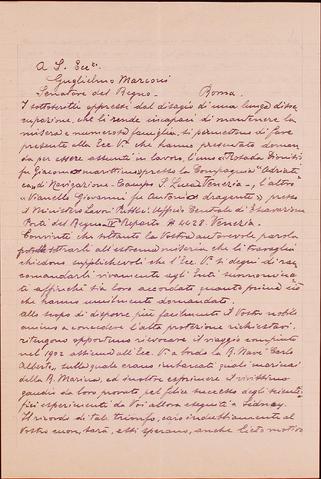 A S. Ecc.
Guglielmo Marconi
Senatore del Regno - Roma.
I sottoscritti oppressi dal disagio di una lunga disoc-
cupazione, che li rende incapaci di mantenere la
misera e numerosa famiglia, si permettono di fare
presente alla Ecc. V. che hanno presentato doman-
da per essere assunti in lavoro, l'uno "Rosada Dionisio
fu Giacomo marottino" presso la Compagnia "Adriati-
ca" di Navigazione - Campo S. Luca Venezia -, l'altro
"Vianello Giovanni fu Antonio dragente", presso
il Ministero Lavori Pubblici Ufficio Centrale di Escavazione
Porti del Regno Reparto Venezia.
Convinti che soltanto la Vostra autorevole parola
potrebbe sottrarli all'estrema miseria che li travaglia
chiedono supplichevoli che l'Ecc. V. si degni di rac-
comandarli vivamente agli Enti summenziona-
ti affinchè sia loro accordato quanto prima ciò
che hanno umilmente domandato.
Allo scopo di disporre più facilmente il Vostro nobile
animo a concedere l'alta protezione richiestavi,
ritengono opportuno rievocare il viaggio compiuto
nel 1902 assieme all'Ecc. V. a bordo la R. Nave "Carlo
Alberto", sulla quale erano imbarcati quali marinai
della R. Marina, ed inoltre esprimere il vivissimo
gaudio da loro provato pel felice successo degli
esperimenti da Voi allora eseguiti a Sidney.
Il ricordo di tale trionfo, caro indubbiamente al
Vostro cuore, sarà, essi sperano, anche lieto motivo